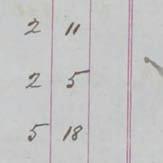 2 11
2 5
5 18